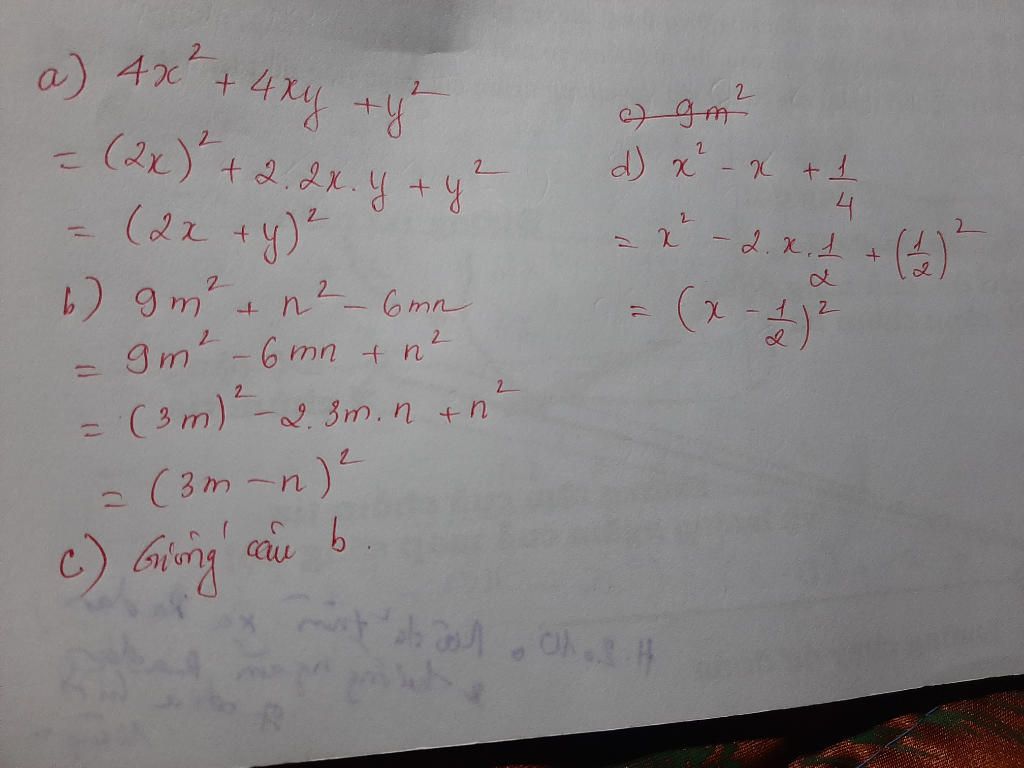 a) 4x² + 4xy + y²
= (2x)² + 2.2x.y + y²
= (2x + y)²
b) 9m² + n² - 6mn
= 9m² - 6mn + n²
= (3m)² - 2.3m.n + n²
= (3m - n)²
c) Giống câu b.
c) 9m²
d) x² - x + 1/4
= x² - 2.x.1/2 + (1/2)²
= (x - 1/2)²